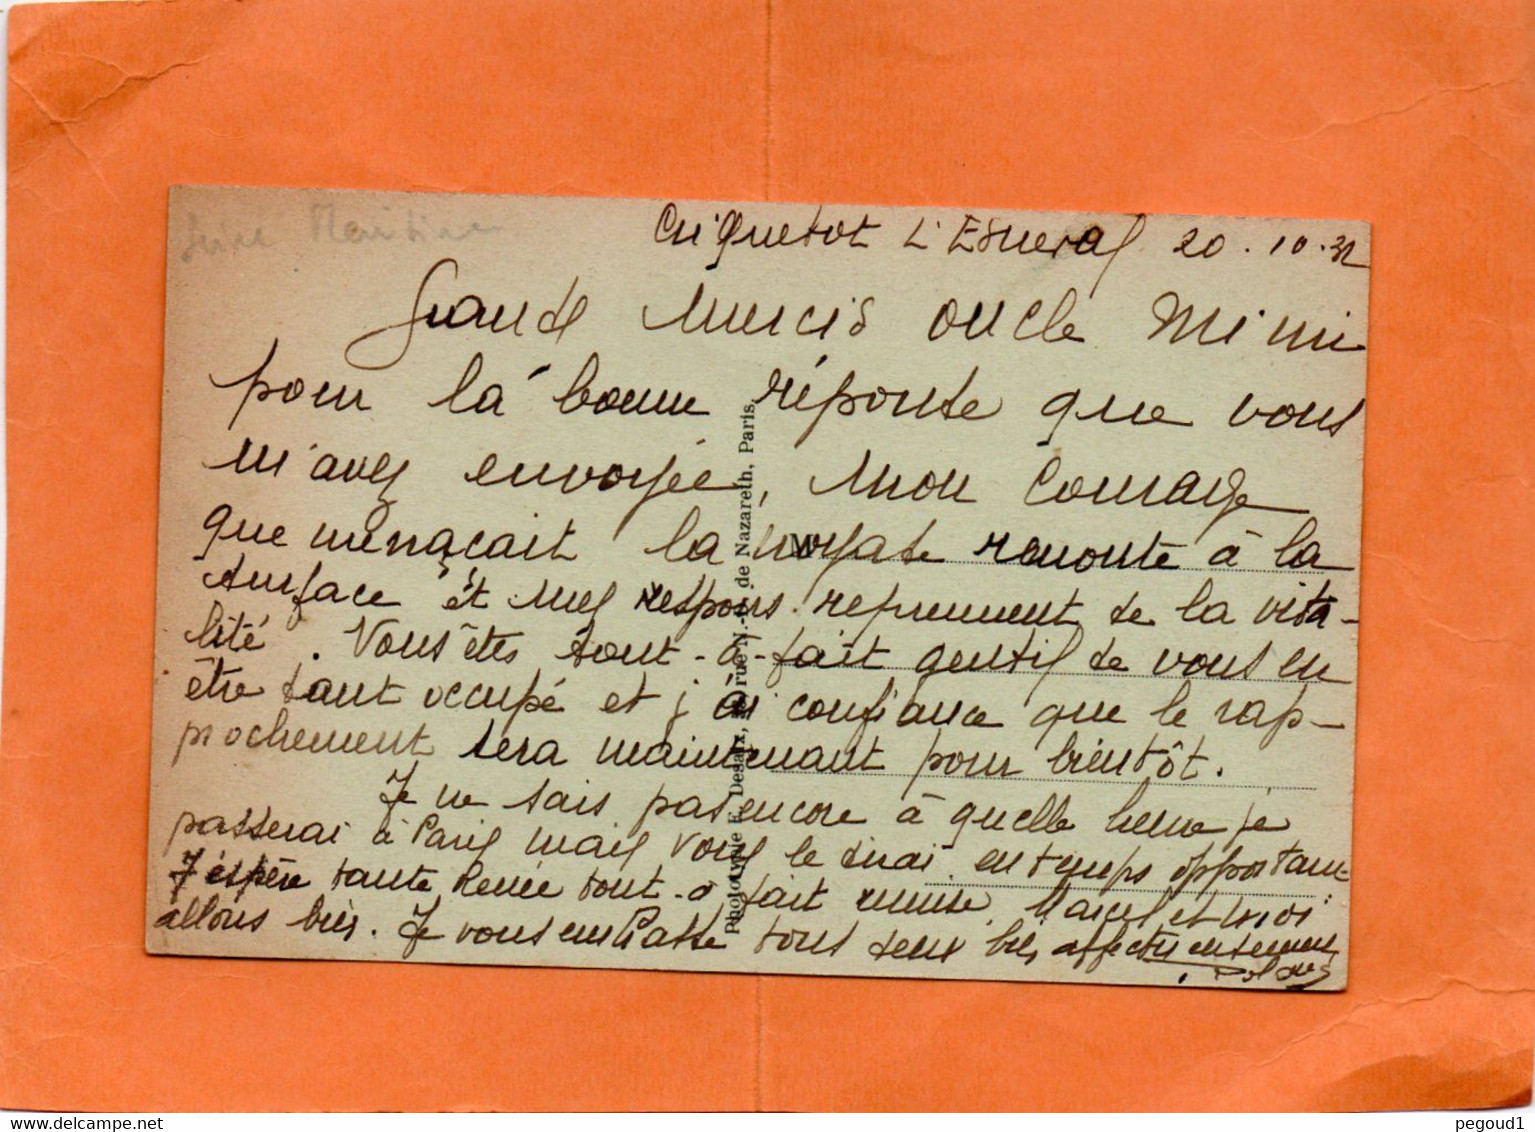 Seine Maritime
Criquetot L'Esneval 20.10.32
Grands Mercis oncle Mimi
pour la bonne réponse que vous
m'avez envoyée, Mon courage
que menaçait la remonte à la
surface et mes espoirs reprennent de la vita-
lité. Vous êtes tout-à-fait gentil de vous en
être tant occupé et j'ai confiance que le rap-
prochement sera maintenant pour bientôt.
Je ne sais pas encore à quelle heure je
passerai à Paris mais vous le dirai en temps opportun.
J'espère tante Renée tout-à fait remise. Marcel et moi
allons bien. Je vous embrasse tous deux bien affectueusement
Phototypie E. Desaix, rue N.-D. de Nazareth, Paris.
pegoud1